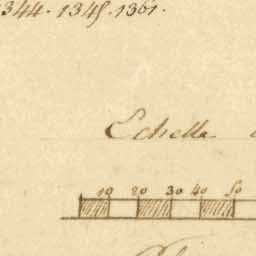 1344. 1345. 1361.
Echelle
10 20 30 40 50